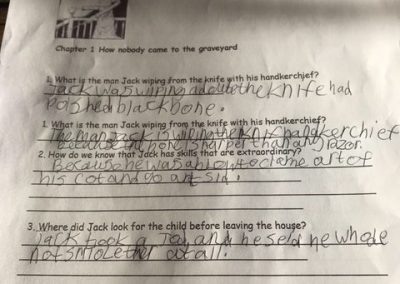 Chapter 1 How nobody came to the graveyard
1. What is the man Jack wiping from the knife with his handkerchief?
Jack was wiping the knife had
polished black bone.
1. What is the man Jack wiping from the knife with his handkerchief?
The man Jack is wiping the knif handkerchief
because the hone is harper than any razor.
2. How do we know that Jack has skills that are extraordinary?
Because he was to out of
his cot and go
3. Where did Jack look for the child before leaving the house?
Jack took a and he he whole
not at all.